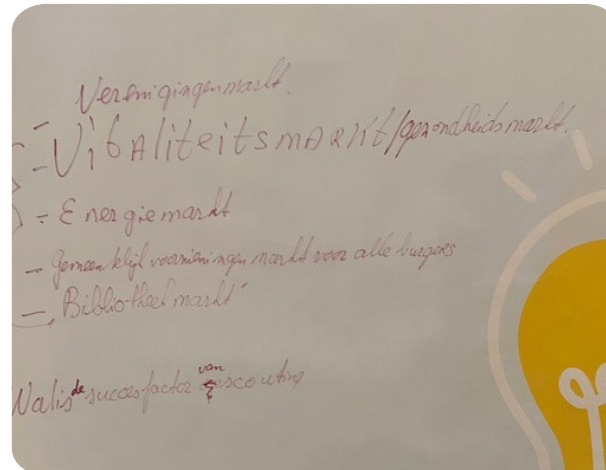 Verenigingenmarkt.
- VitAliteitsmARkt/gezondheidsmarkt.
- Energiemarkt
- Gemeentelijl voorzieningen markt voor alle burgers
- "Bibliotheekmarkt"
Wat is de succesfactor van scouting